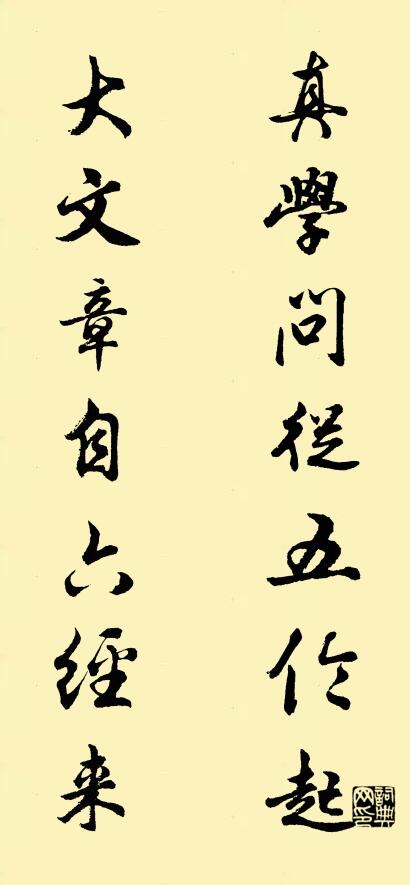 真學問從五伦起
大文章自六經来
詞典
网印